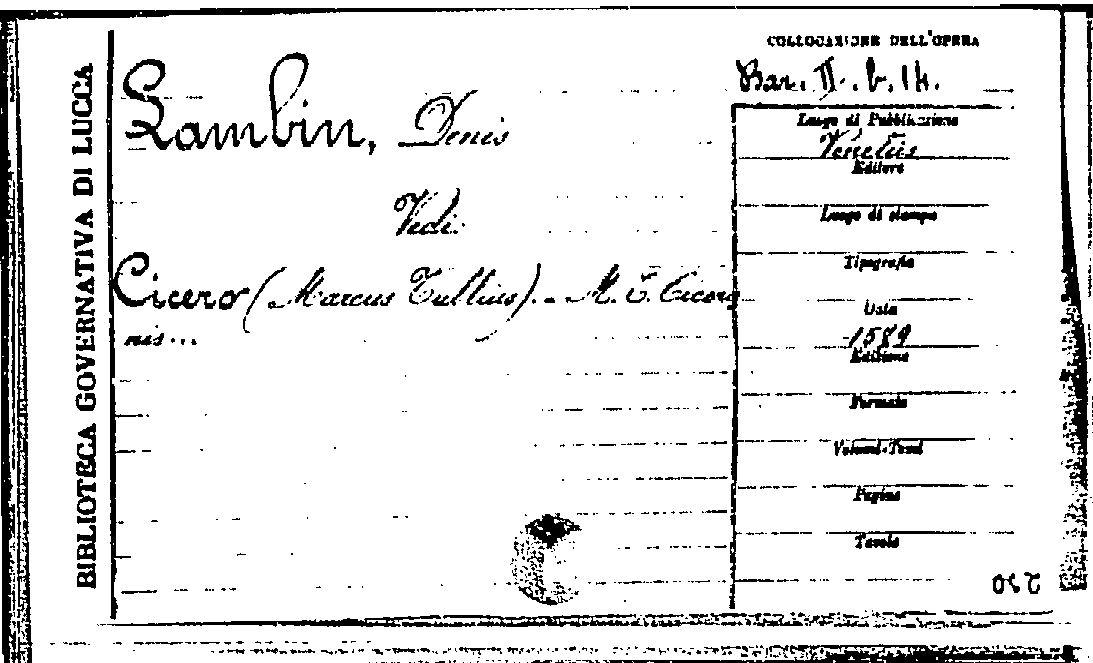 BIBLIOTECA GOVERNATIVA DI LUCCA
COLLOCAZIONE DELL'OPERA
Bar. II. b. 14.
Lambin, Denis
Vedi:
Cicero (Marcus Tullius). - M. T. Cicero
nis...
Luogo di Pubblicazione
Venetiis
Editore
Luogo di stampa
Tipografia
Data
1589
Edizione
Formato
Volumi-Tomi
Pagine
Tavole